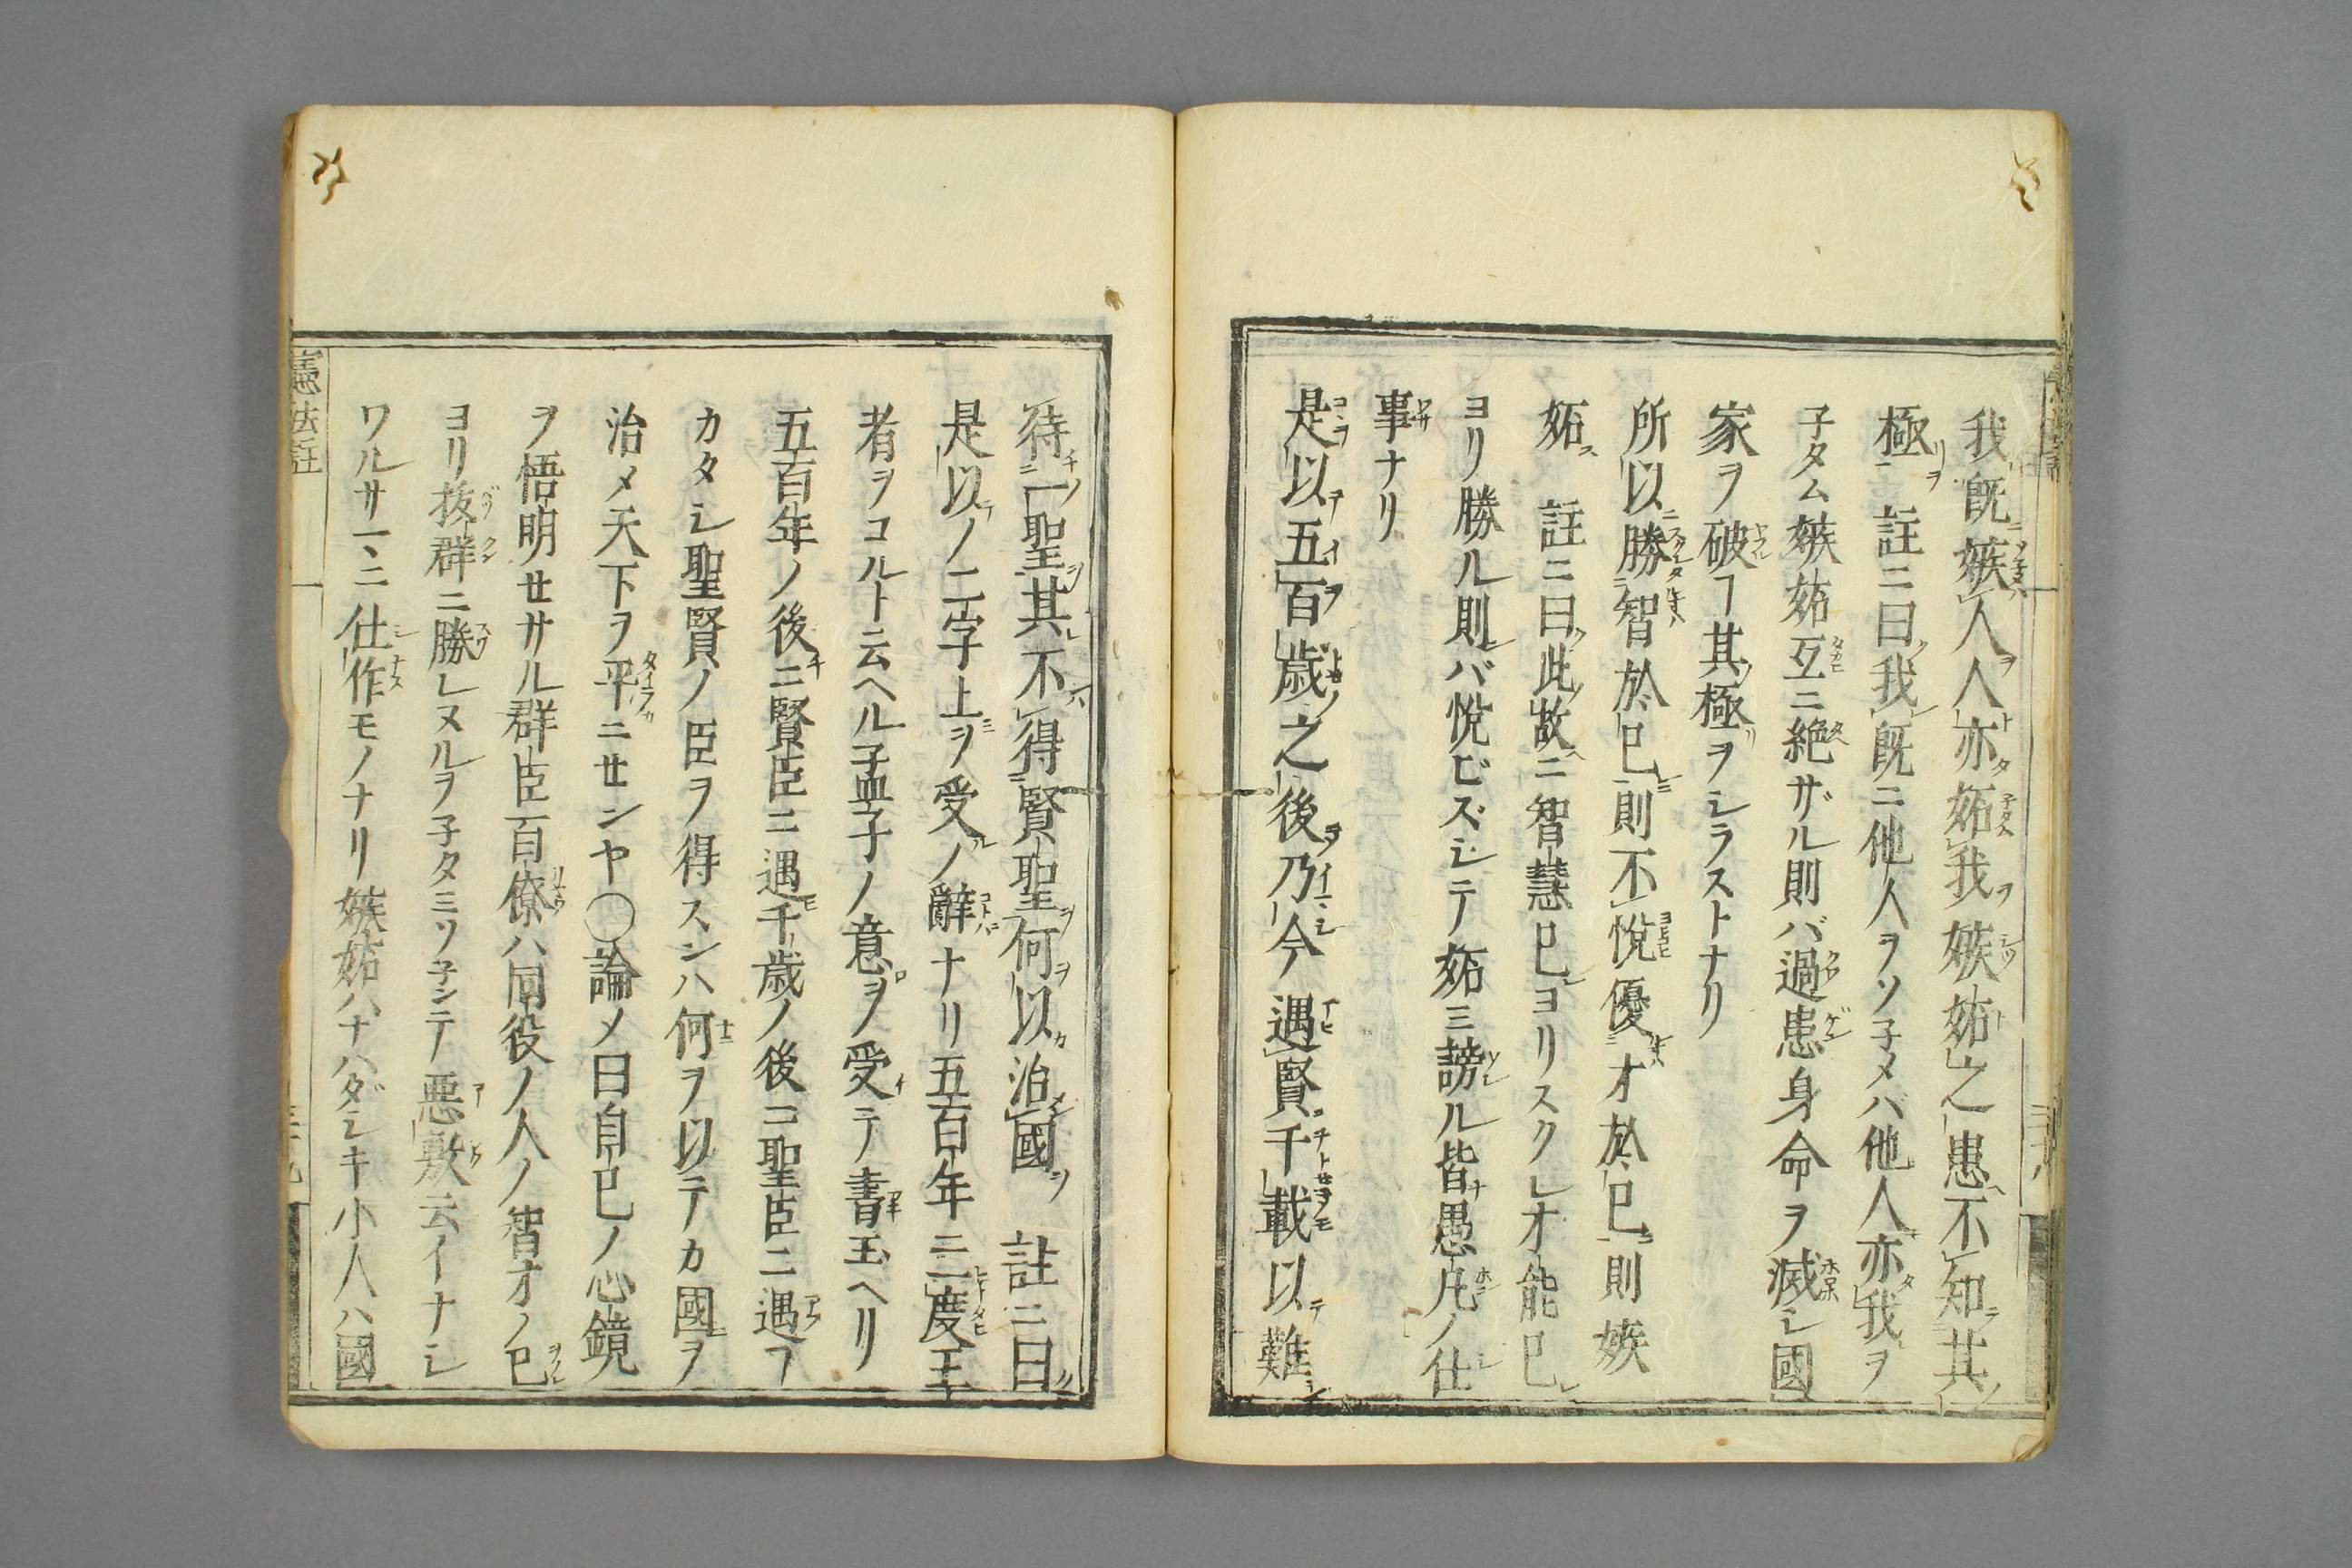 我既嫉人人亦妬我嫉妬之患不知其
極 註ニ曰我既ニ他人ヲソ子メバ他人亦我ヲ
子タム嫉妬互ニ絶ザル則バ過患身命ヲ滅シ國
家ヲ破ヿ其極ヲシラストナリ
所以勝智於已則不悅優才於已則嫉
妬 註ニ曰此故ニ智慧已ヨリスクレ才能已
ヨリ勝ル則バ悅ビズシテ妬ミ謗ル皆愚凡ノ仕
事ナリ
是以五百歳之後乃今遇賢千載以難
待一聖其不得賢聖何以治國 註ニ曰
是以ノ二字上ヲ受ノ辭ナリ五百年ニ一度王
者ヲコルト云ヘル孟子ノ意ヲ受テ書玉ヘリ
五百年ノ後ニ賢臣ニ遇千歳ノ後コ聖臣ニ遇ヿ
カタシ聖賢ノ臣ヲ得スンハ何ヲ以テカ國ヲ
治メ天下ヲ平ニセンヤ〇論メ曰自已ノ心鏡
ヲ悟明セサル群臣百僚ハ同役ノ人ノ智才ノ已
ヨリ抜群ニ勝レヌルヲ子タミソ子ンテ惡敷云イナシ
ワルサーニ仕作モノナリ嫉妬ハナハダシキ小人ハ國
憲法註